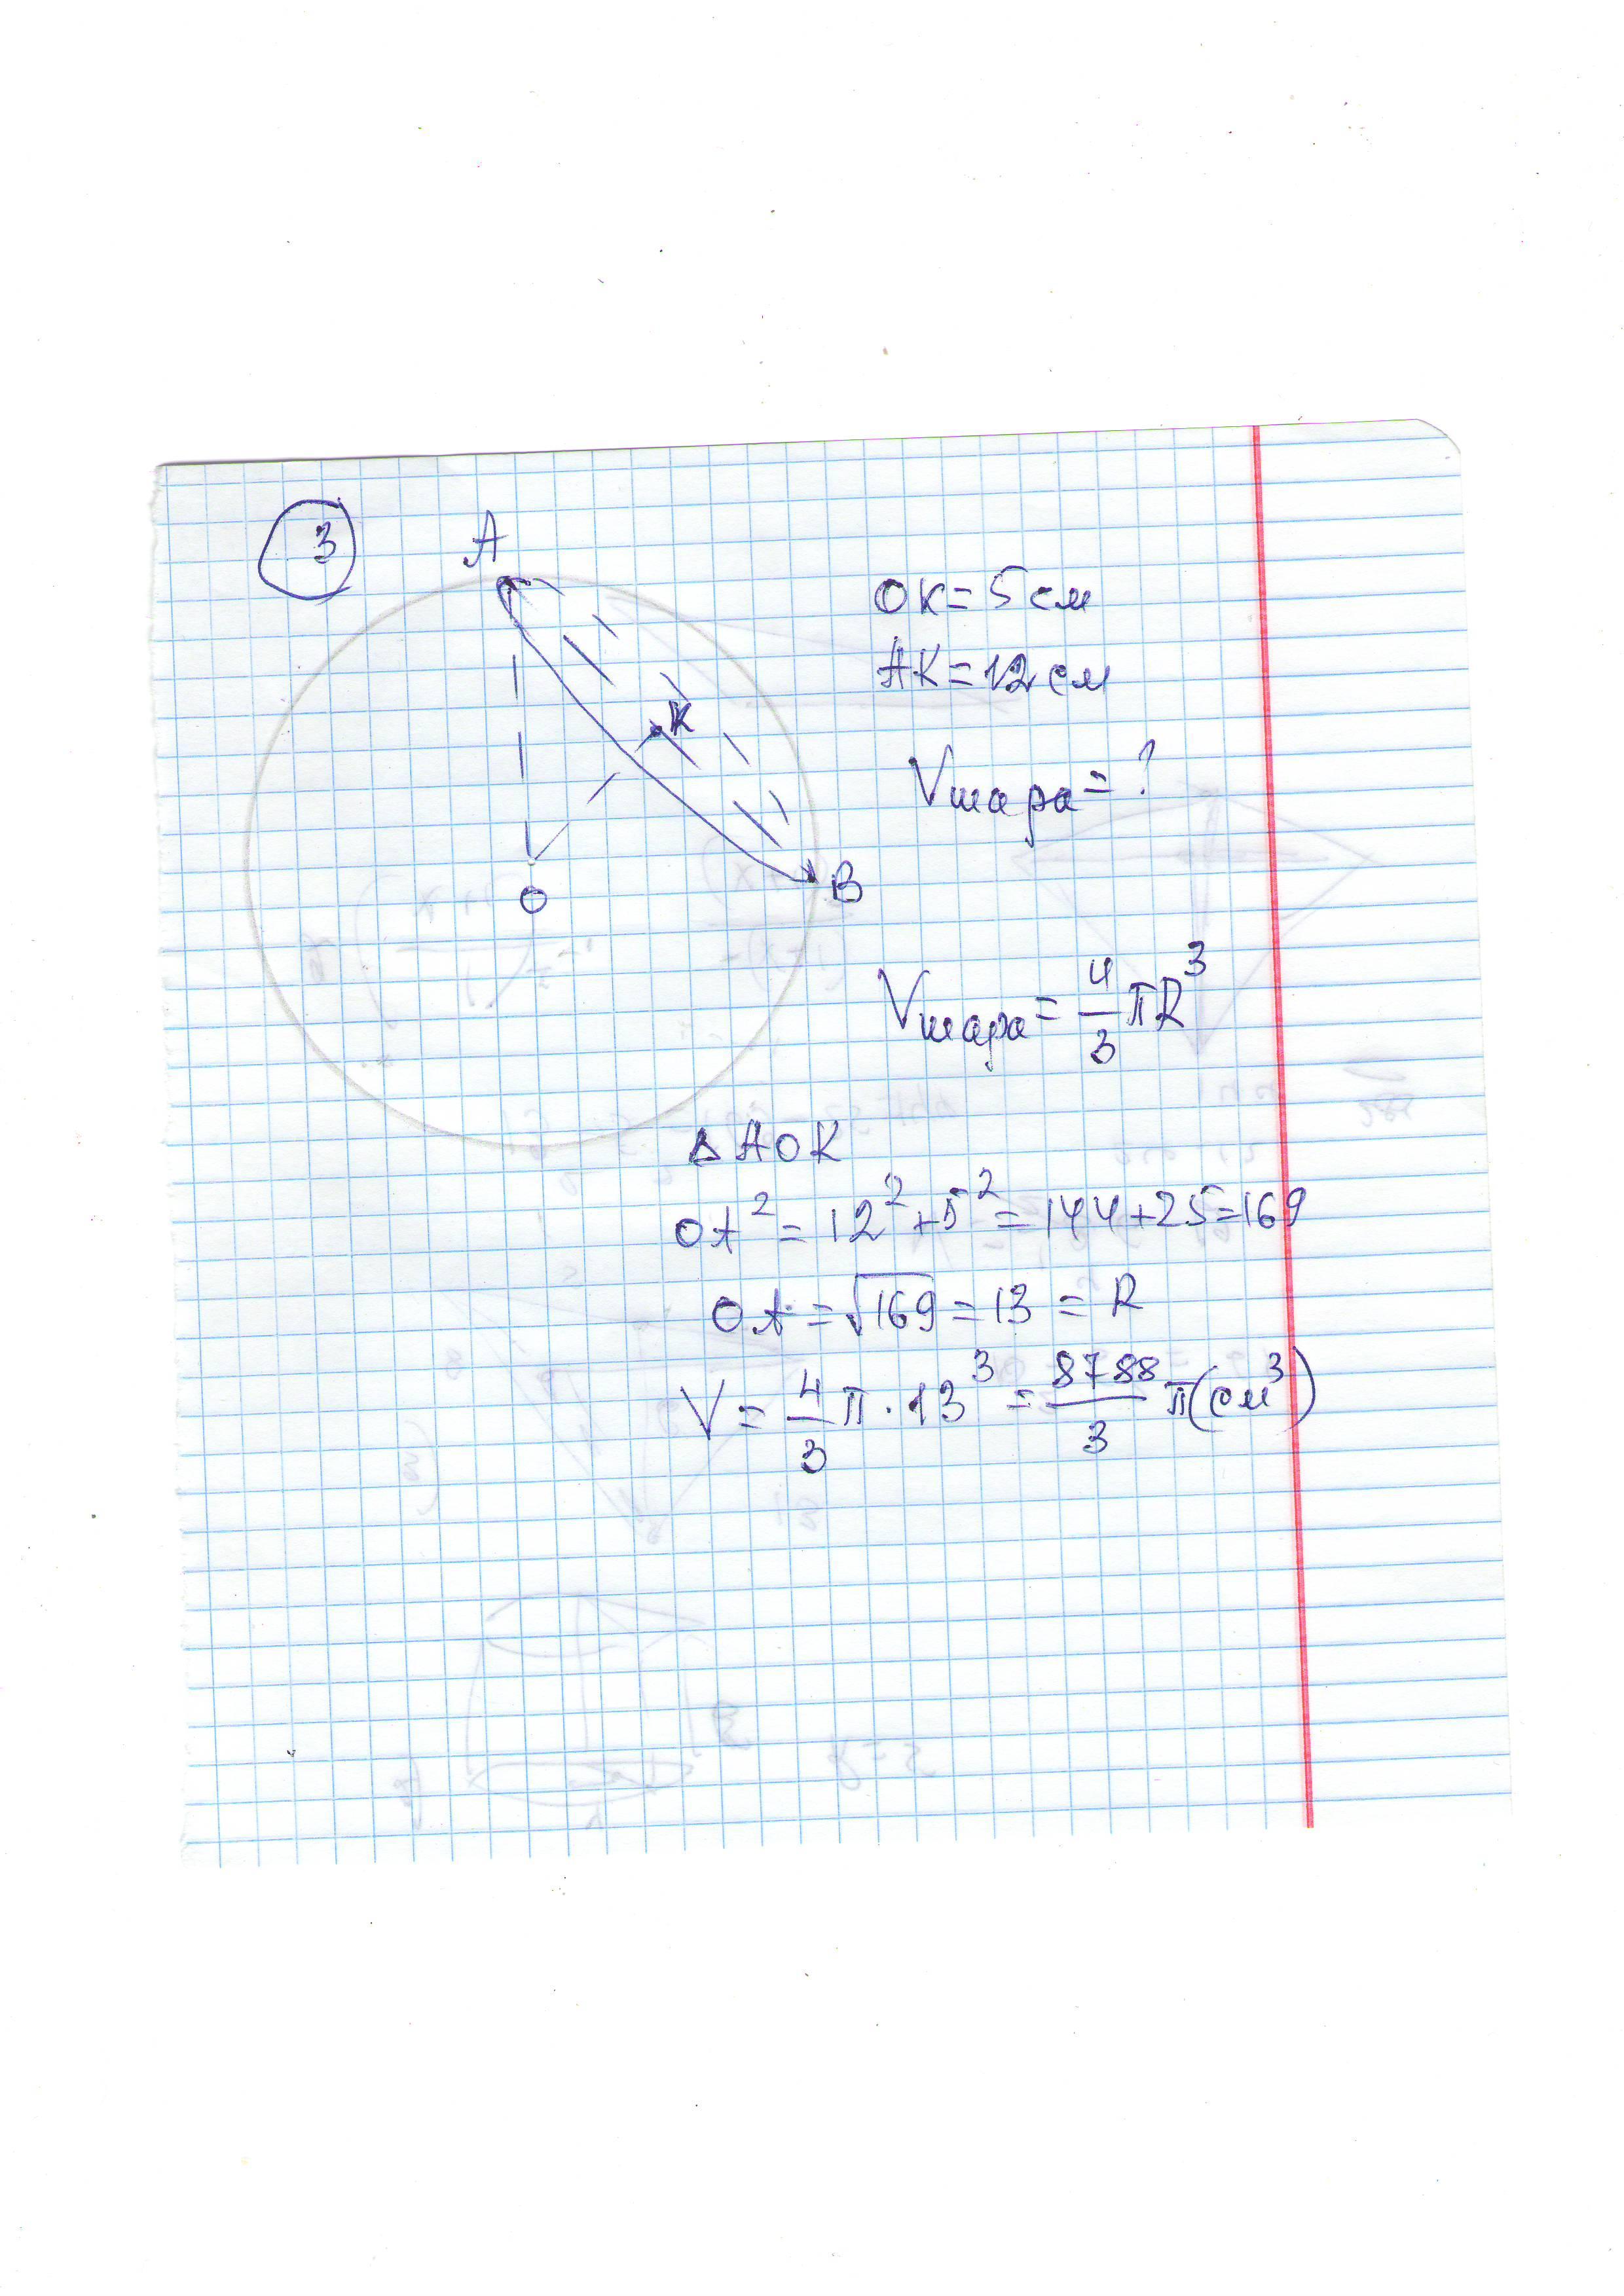 3
A
OK = 5 см
AK = 12 см
K
Vшара = ?
O
B
Vшара = 4/3 πR³
△AOK
OA² = 12² + 5² = 144 + 25 = 169
OA = √169 = 13 = R
V = 4/3 π · 13³ = 8788/3 π (см³)